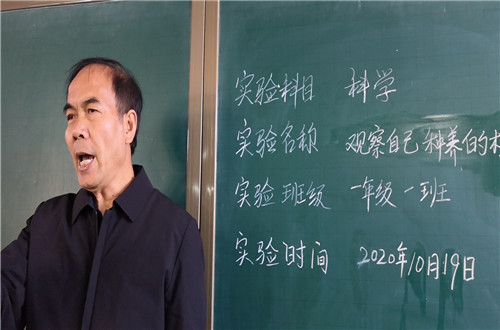 实验科目 科学
实验名称 观察自己种养的
实验班级 一年级一班
实验时间 2020年10月19日